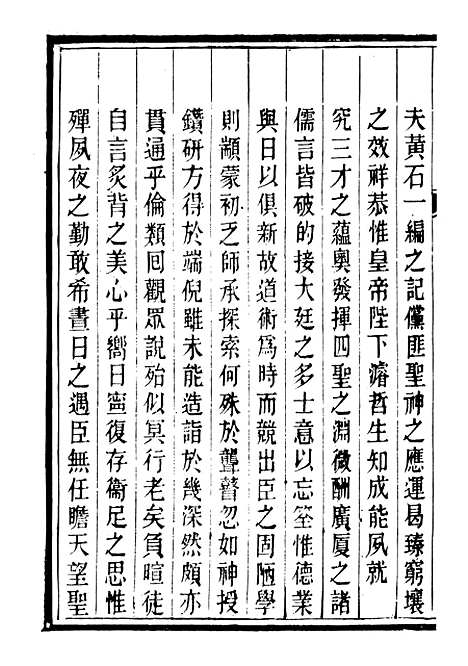 夫黃石一編之記儻匪聖神之應運曷臻窮壤
之效祥恭惟皇帝陛下濬哲生知成能夙就
究三才之蘊奧發揮四聖之淵微酬廣厦之諸
儒言皆破的接大廷之多士意以忘筌惟德業
與日以俱新故道術爲時而競出臣之固陋學
則顓蒙初乏師承探索何殊於聾瞽忽如神授
鑽研方得於端倪雖未能造詣於幾深然頗亦
貫通乎倫類回觀眾說殆似冥行老矣負暄徒
自言炙背之美心乎嚮日寧復存衞足之思惟
殫夙夜之勤敢希晝日之遇臣無任瞻天望聖